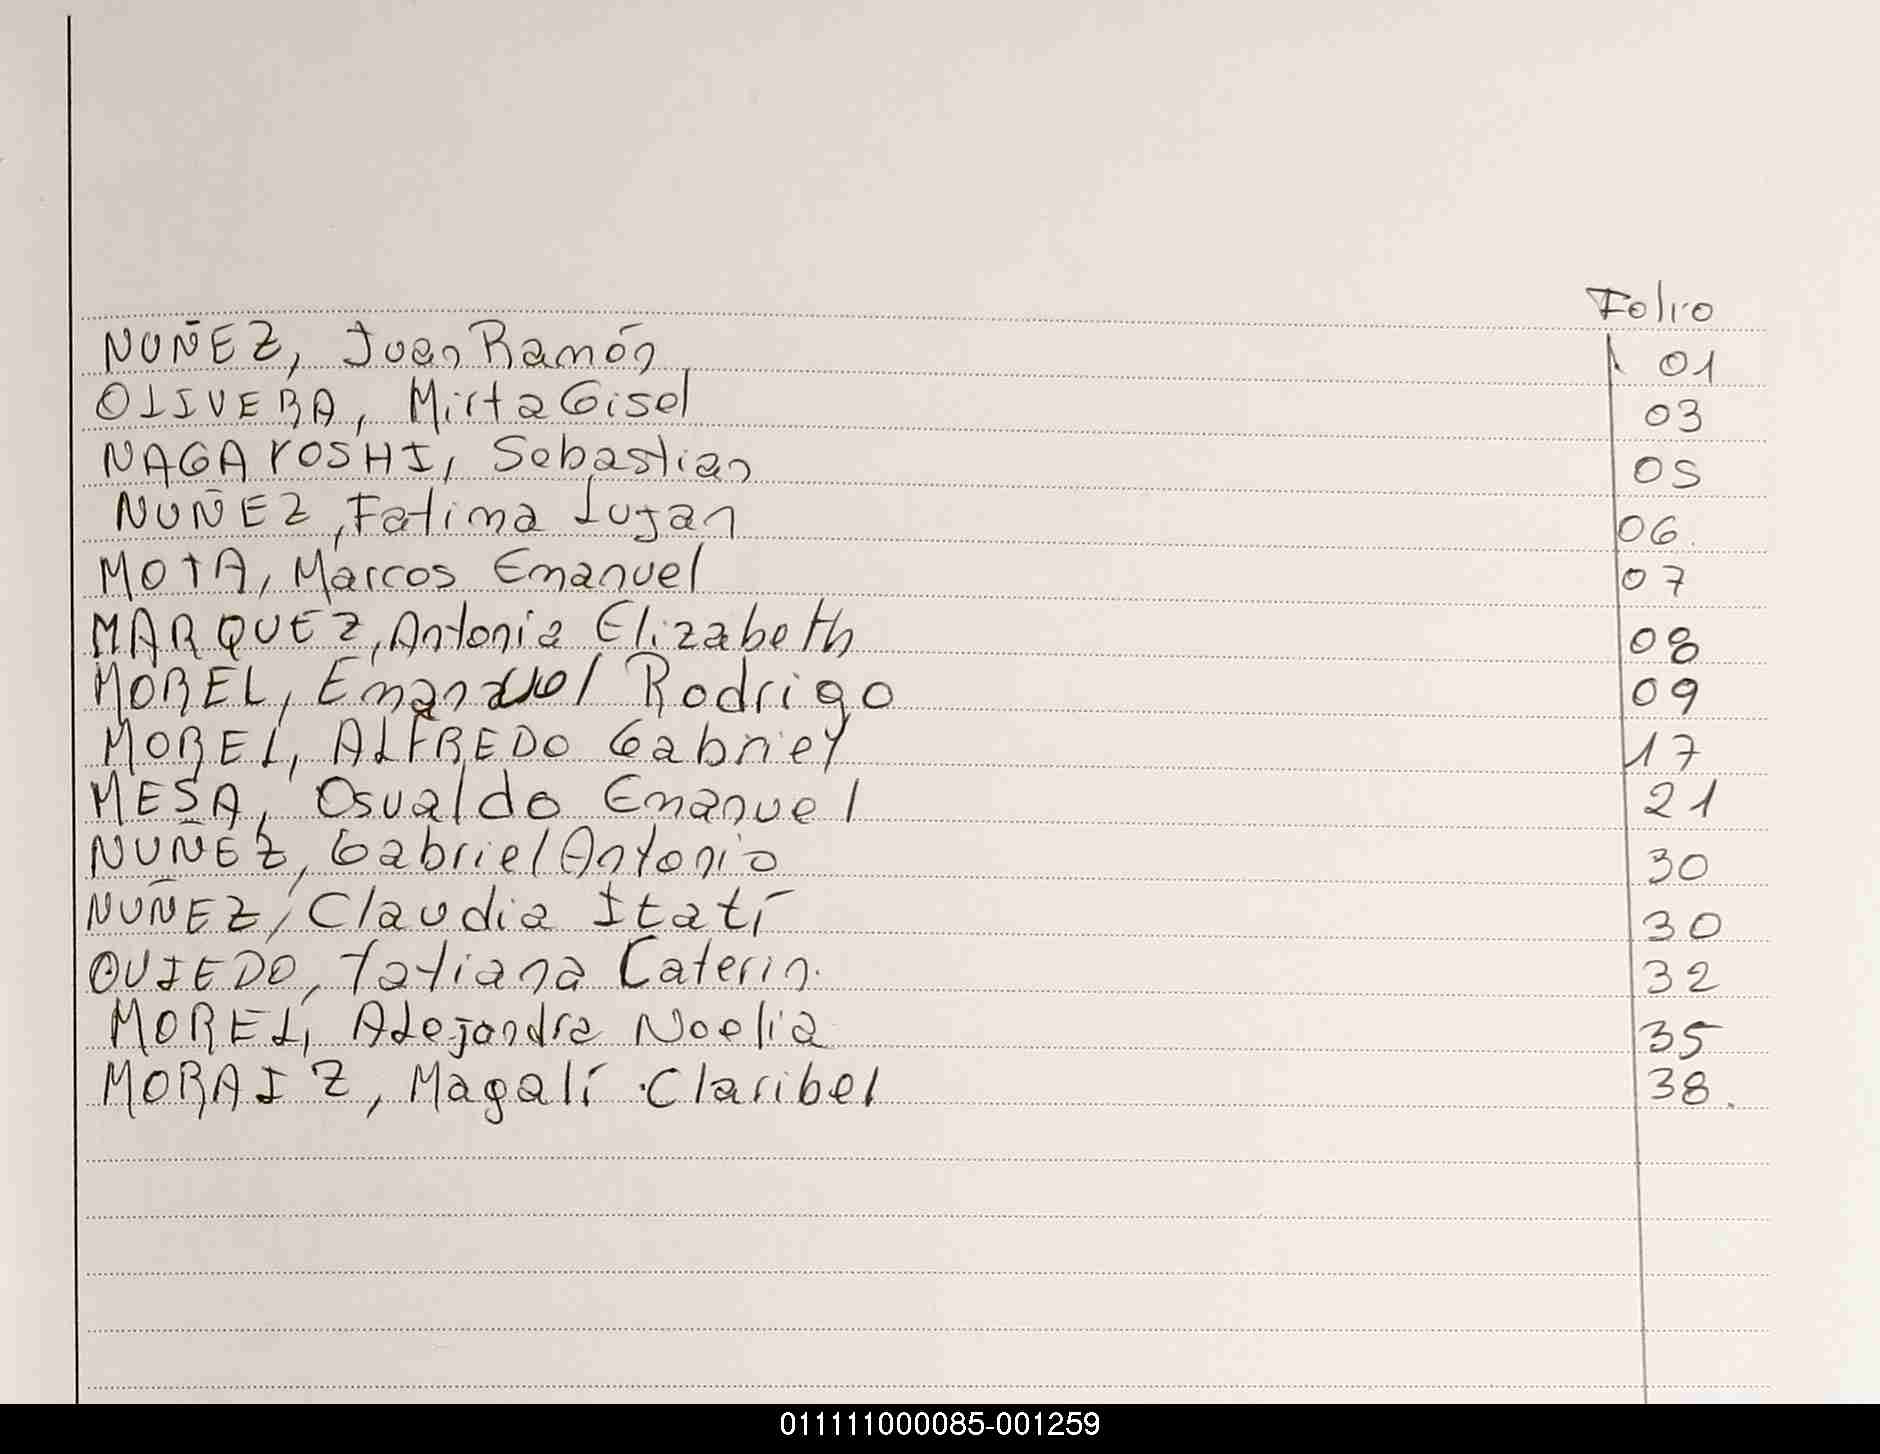 Folio
NUÑEZ, Juan Ramón 01
OLIVERA, Mirta Gisel 03
NAGAYOSHI, Sebastian 05
NUÑEZ, Fatima Lujan 06.
MOTA, Marcos Emanuel 07
MARQUEZ, Antonia Elizabeth 08
MOREL, Emanuel Rodrigo 09
MOREL, ALFREDO Gabriel 17
MESA, Osvaldo Emanuel 21
NUÑEZ, Gabriel Antonio 30
NUÑEZ, Claudia Itatí 30
OVIEDO, Tatiana Caterin. 32
MOREL, Alejandra Noelia 35
MORAIZ, Magalí Claribel 38.
011111000085-001259